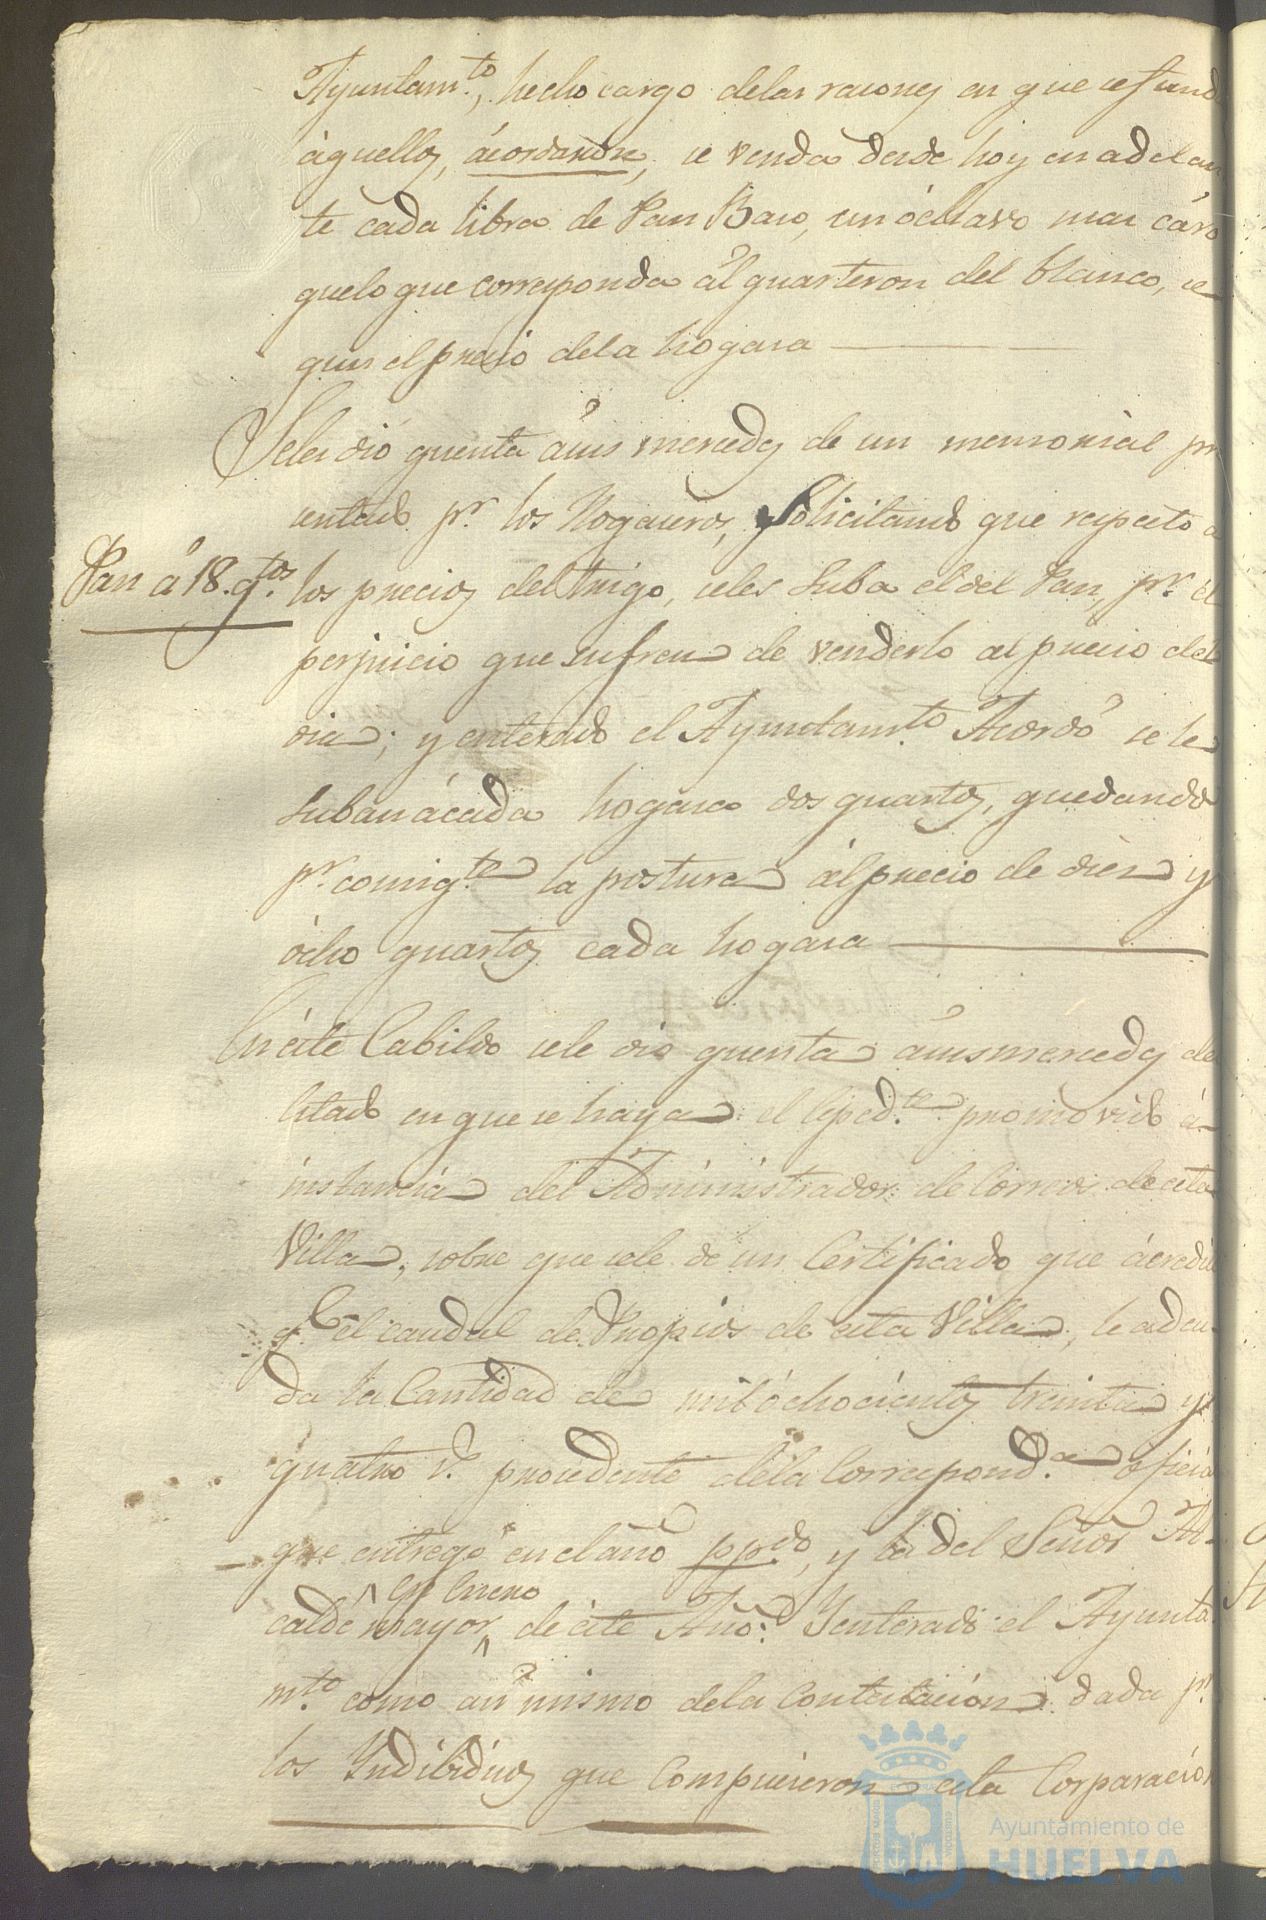 Ayuntam.to, hecho cargo delas raiones en que se funda
àquellos, ácordaron, se venda desde hoy en adelan
te cada libra de Pan Baso, un óchavo mas caro
quelo que corresponda àl quarteron del blanco, se
gun el precio dela hogasa
Seles dió quenta ásus mercedes de un memorial pre
sentado p.r los Hogaseros, Solicitando que respecto a
Pan à 18. q.tos
los precios del trigo, seles suba el del Pan, p.r el
perjuicio que sufren de venderlo al precio del
dia; y enterado el Ayuntam.to Acordó se le
suban ácada hogasa dos quartos, quedando
p.r consig.te la postura àl precio de diez y
ócho quartos cada hogasa
En éste Cabildo sele dio quenta ásusmercedes del
Estado en que se haya el Exped.te promovido á
instancia del Administrador de Correos de esta
Villa, sobre que sele de un Certificado que ácredite
q.e el caudal de Propios de esta Villa, le adeu
da la Cantidad de mil óchocientos treinta y
quatro r.s procedente dela Correspond.a oficial
que entregó en el año pp.do, y la del Señor Al
en Enero
calde mayor, de éste Año. Y enterado el Ayunta
m.to como asi mismo dela Contestación dada p.r
los Yndibiduos que Compusieron esta Corporación
Ayuntamiento de
HUELVA